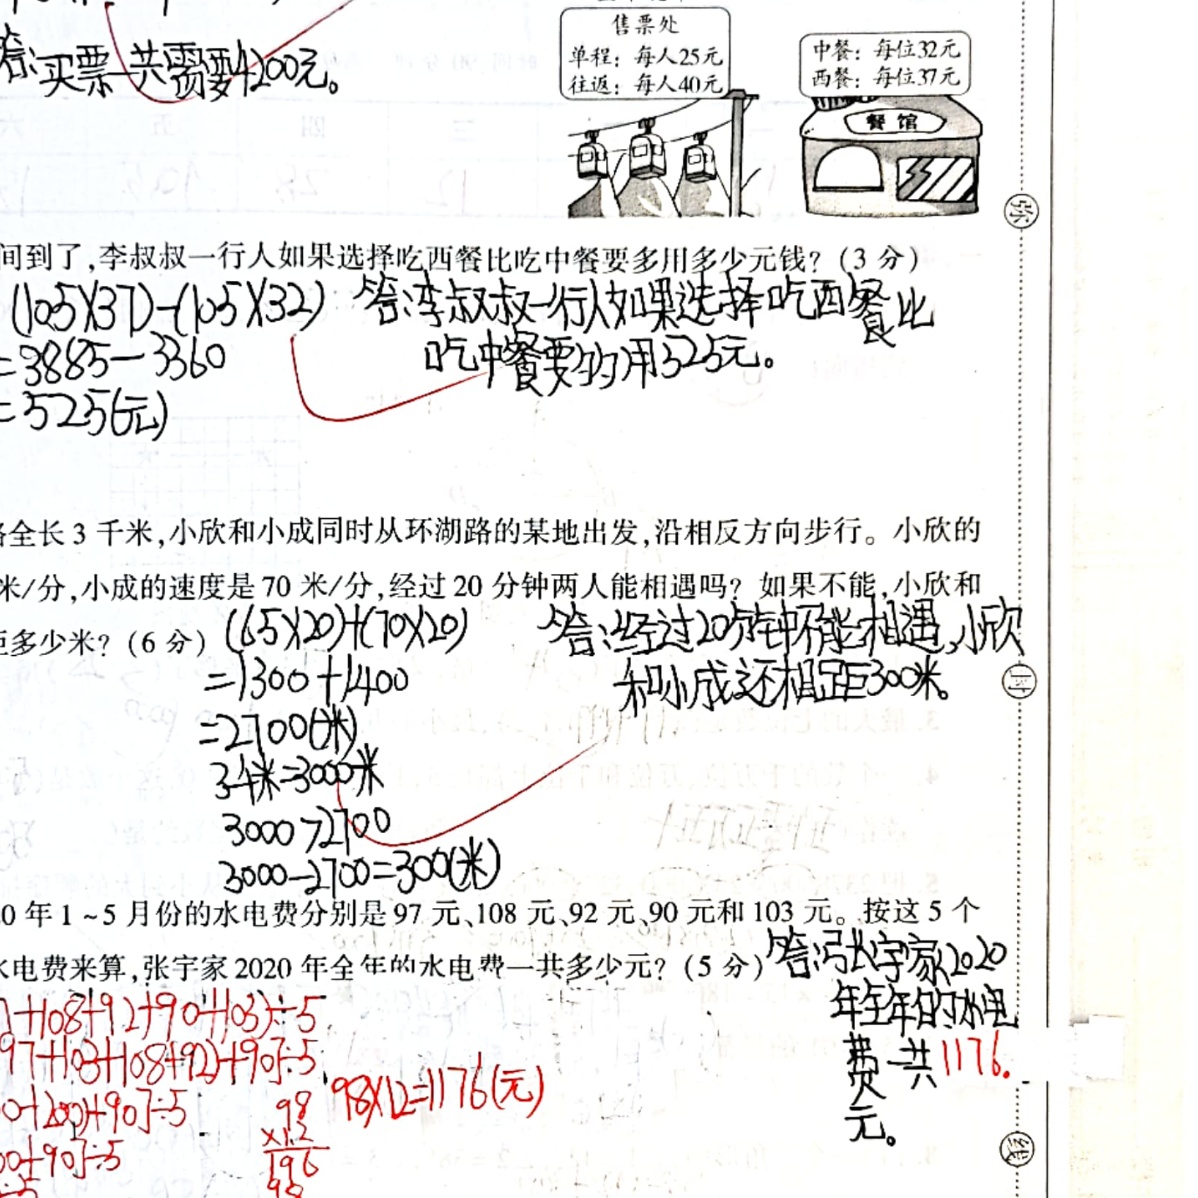 售票处
单程：每人25元
往返：每人40元
中餐：每位32元
西餐：每位37元
餐馆
答：买票一共需要4200元。
弥
间到了，李叔叔一行人如果选择吃西餐比吃中餐要多用多少元钱？（3分）
(105×37)-(105×32)
=3885-3360
=525(元)
答：李叔叔一行人如果选择吃西餐比
吃中餐要多用525元。
路全长3千米，小欣和小成同时从环湖路的某地出发，沿相反方向步行。小欣的
米/分，小成的速度是70米/分，经过20分钟两人能相遇吗？如果不能，小欣和
距多少米？（6分）
(65×20)+(70×20)
=1300+1400
=2700(米)
3千米=3000米
3000>2700
3000-2700=300(米)
答：经过20分钟不能相遇，小欣
和小成还相距300米。
封
0年1~5月份的水电费分别是97元、108元、92元、90元和103元。按这5个
水电费来算，张宇家2020年全年的水电费一共多少元？（5分）
+108+92+90+103)÷5
97+103+108+92)+90]÷5
0+200)+90]÷5
00+90]÷5
98×12=1176(元)
98
×12
196
98
答：张宇家2020
年全年的水电
费一共1176.
元。
线